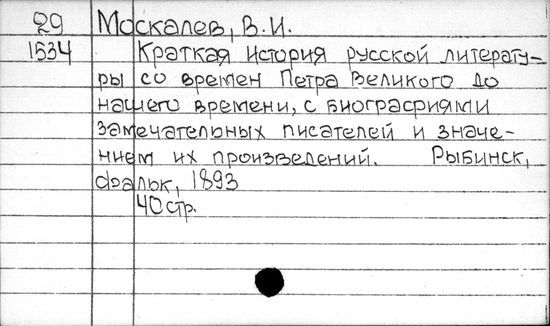 29 Москалев, В.И.
1534 Краткая история русской литерату-
ры со времен Петра Великого до
нашего времени, с биографиями
замечательных писателей и значе-
нием их произведений. Рыбинск,
Фальк, 1893
40 стр.